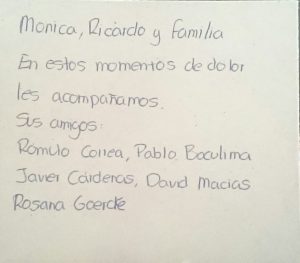 Monica, Ricardo y familia
En estos momentos de dolor
les acompañamos.
Sus amigos:
Rómulo Correa, Pablo Baculima
Javier Cárdenas, David Macias
Rosana Goercke